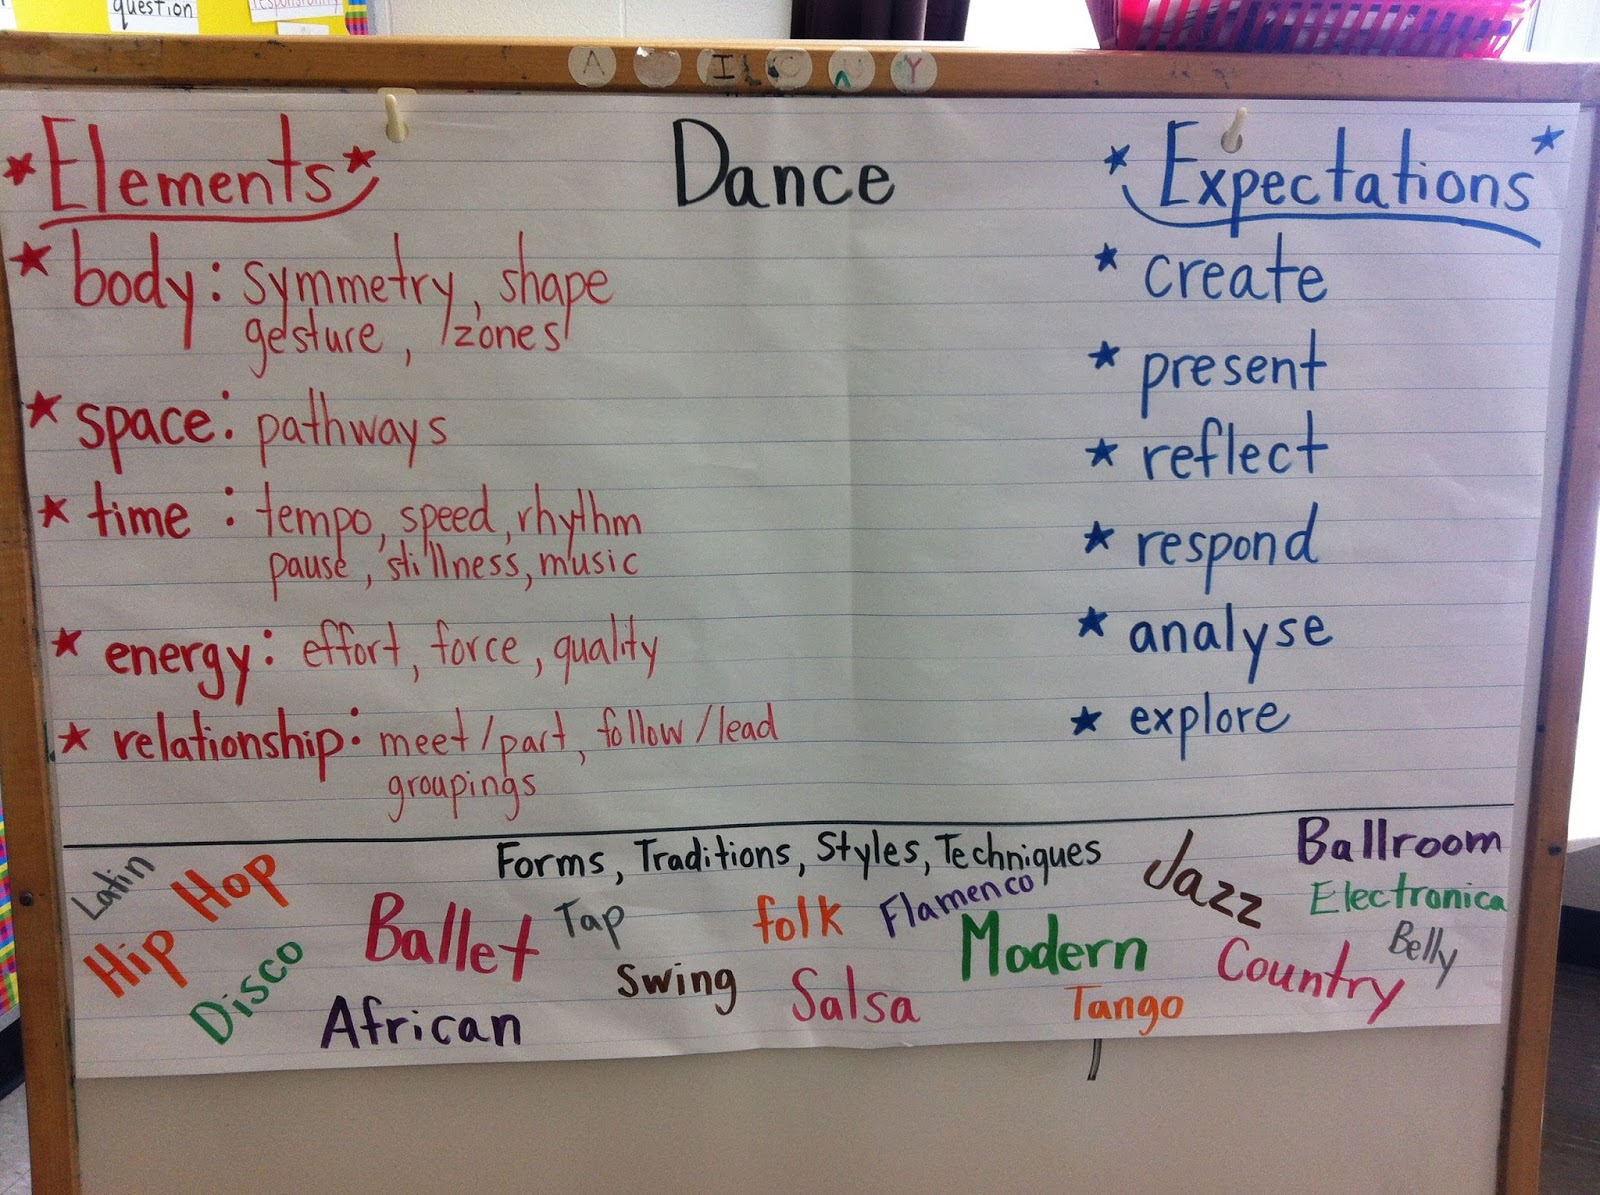 question
responsibility
A I C Y
Dance
*Elements*
* body: symmetry, shape
gesture, zones
* space: pathways
* time: tempo, speed, rhythm
pause, stillness, music
* energy: effort, force, quality
* relationship: meet/part, follow/lead
groupings
* Expectations *
* create
* present
* reflect
* respond
* analyse
* explore
Forms, Traditions, Styles, Techniques
Latin
Hip Hop
Disco
Ballet
African
Tap
Swing
folk
Salsa
Flamenco
Modern
Tango
Jazz
Country
Ballroom
Electronica
Belly